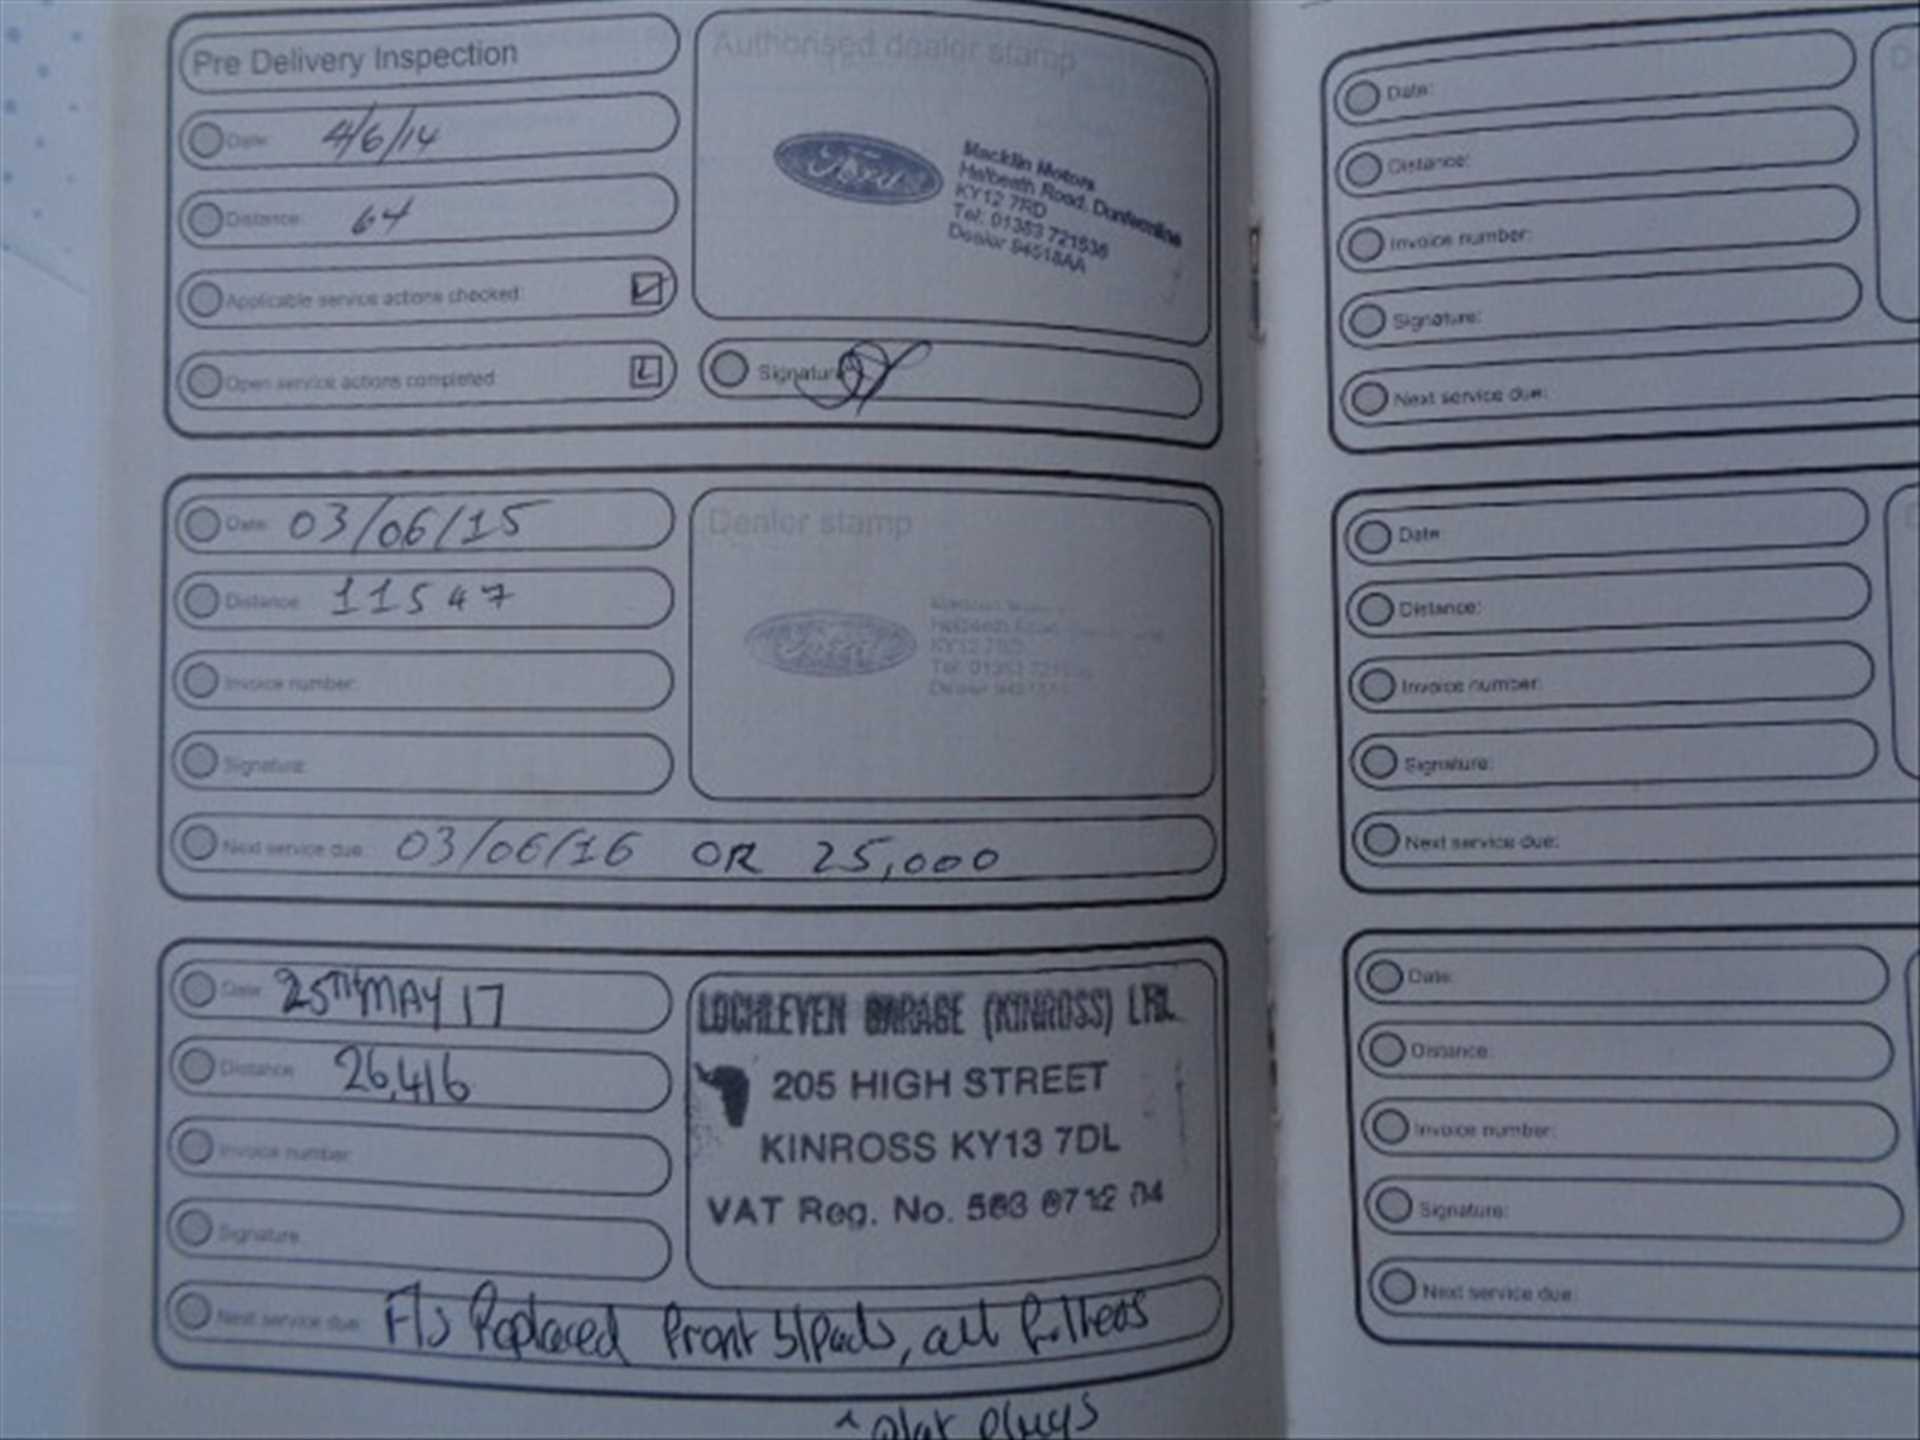 Pre Delivery Inspection
Date: 4/6/14
Distance: 64
Applicable service actions checked:
Open service actions completed
Authorised dealer stamp
Ford
Macklin Motors
Halbeath Road, Dunfermline
KY12 7RD
Tel: 01383 721536
Dealer 94518AA
Signature
Date: 03/06/15
Distance: 11547
Invoice number:
Signature:
Next service due: 03/06/16 OR 25,000
Dealer stamp
Ford
Halbeath Road
KY12 7RD
Tel: 01383
Dealer
Date 25TH MAY 17
Distance 26,416
Invoice number:
Signature
Next service due: F/S Replaced front b/pads, all filters
plugs
LOCHLEVEN GARAGE (KINROSS) LTD.
205 HIGH STREET
KINROSS KY13 7DL
VAT Reg. No. 563 6712 04
Date:
Distance:
Invoice number:
Signature:
Next service due:
Date:
Distance:
Invoice number:
Signature:
Next service due:
Date:
Distance:
Invoice number:
Signature:
Next service due: